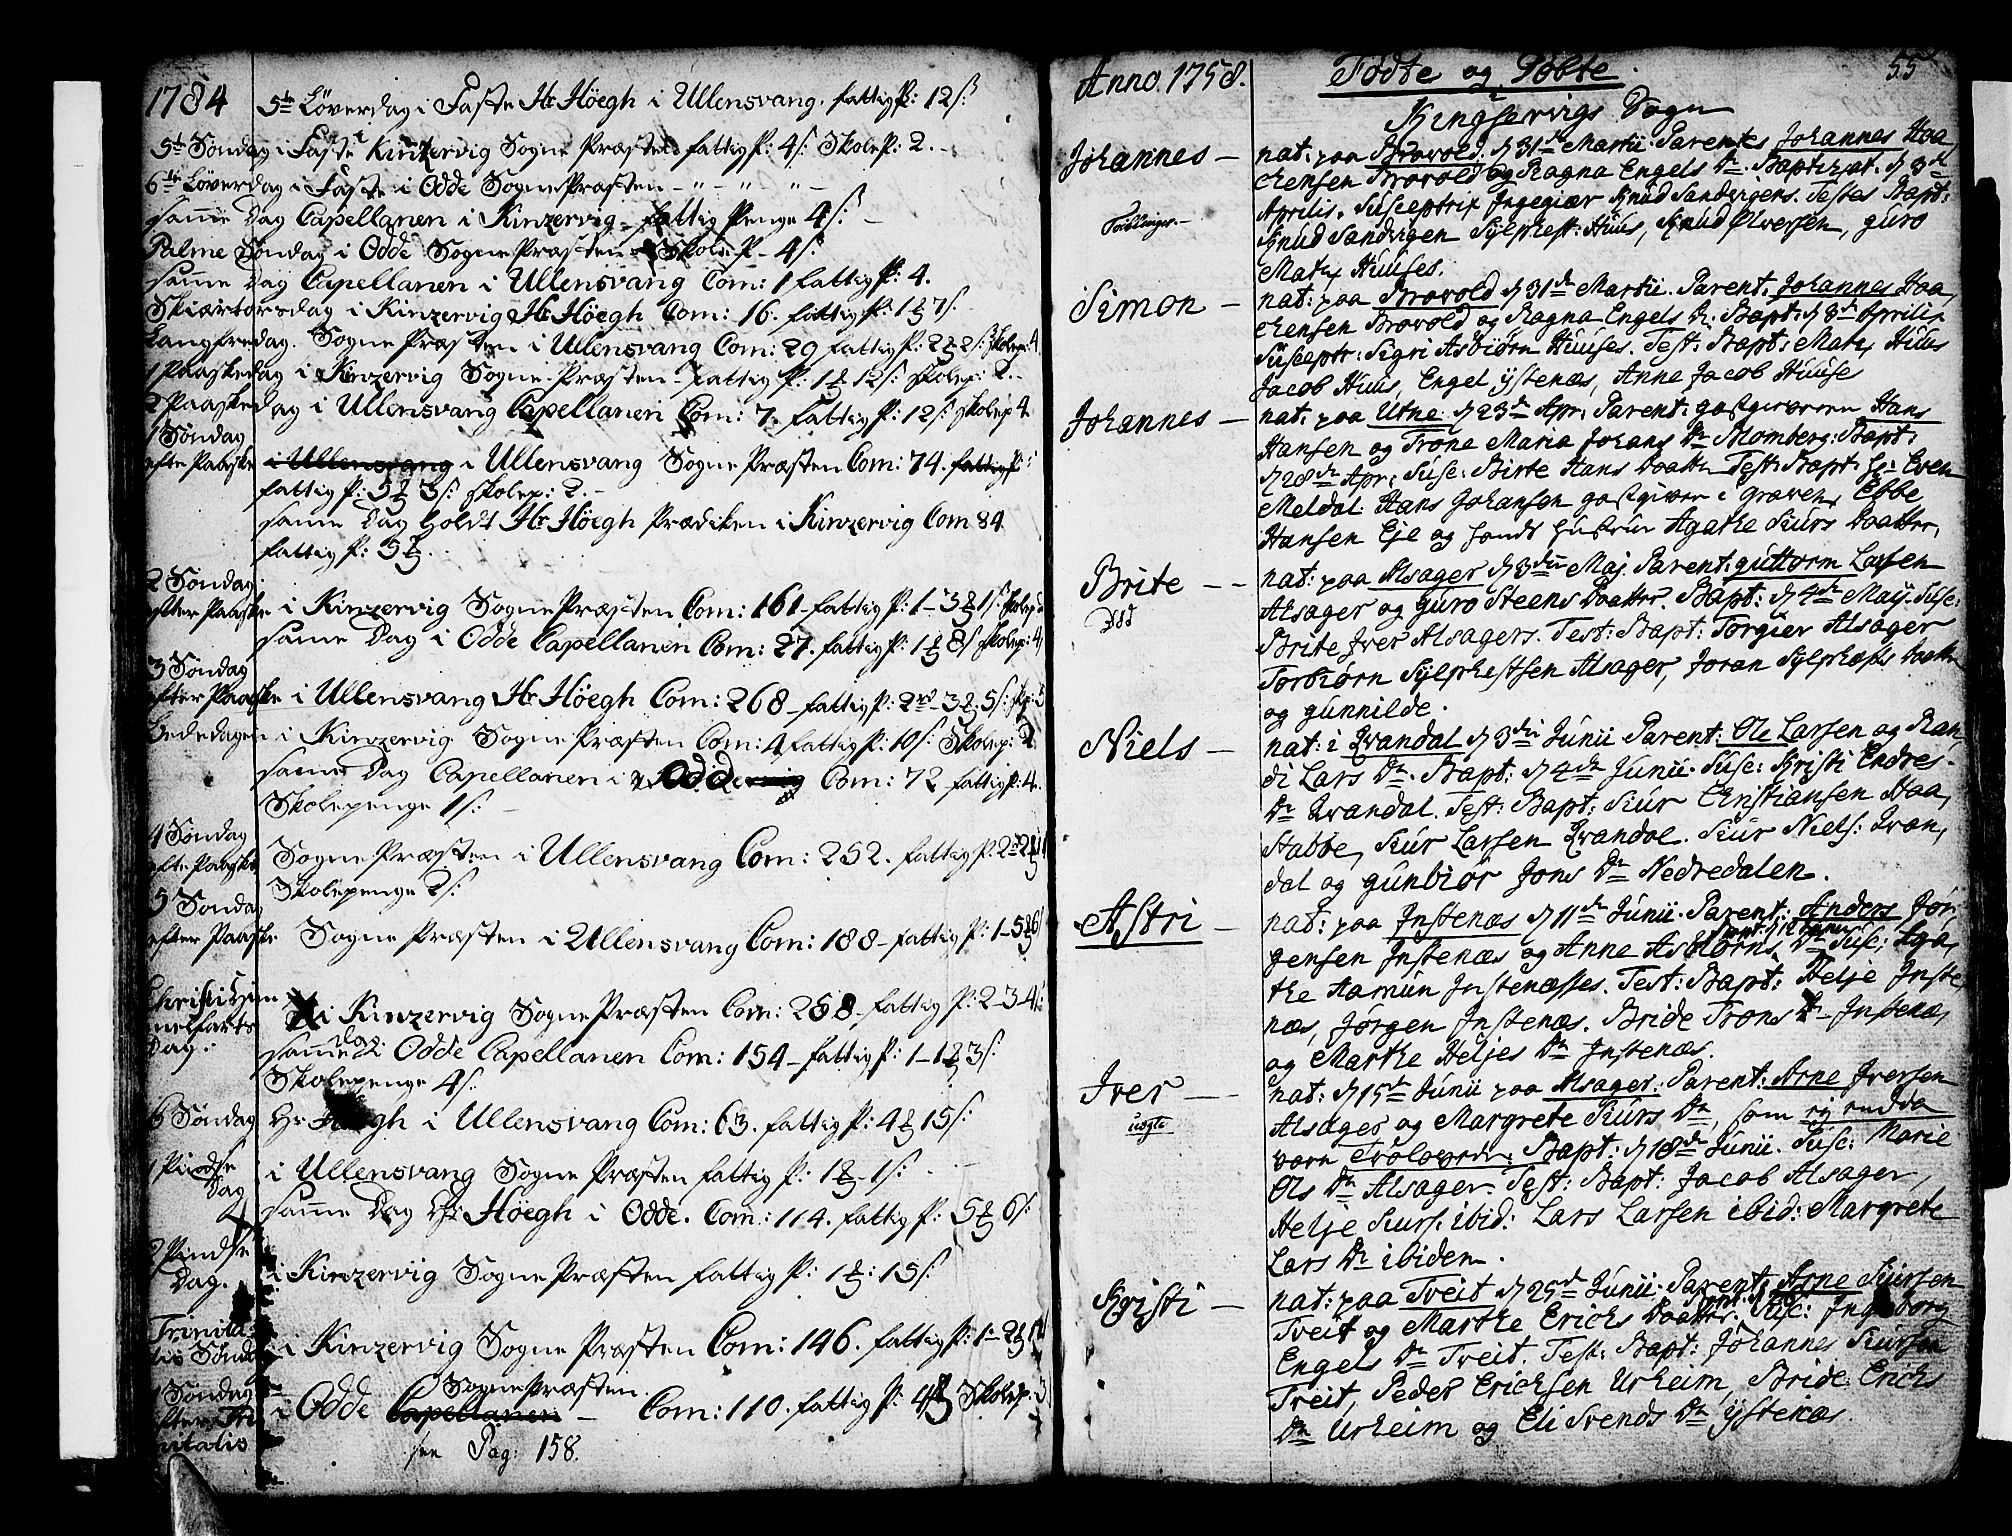 1784 5te Løverdag i Faste Hr Höegh i Ullensvang. fattig P: 12 s:
5te Søndag i Faste Kintzervig Sogne Præsten fattig P: 4 s: Skole P: 2.-
6te Løverdag i Faste i Odde Sogne Præsten - " - " - " -
samme Dag Capellanen i Kinzervig - fattig Penge 4 s: -
Palme Søndag i Odde Sogne Præsten Skole P - 4 s
samme Dag Capellanen i Ullensvang Com: 1 fattig P: 4.
Skiærtorsdag i Kinzervig Hr Höegh Com: 16. fattig P: 1 7 s.
Langfredag. Sogne Præsten i Ullensvang Com: 29 fattig P: 2 2 s: skolep: 4
1 Paaskedag i Kinzervig Sogne-Præsten - fattig P: 1 12 s: skolep: 2.
2 Paaskedag i Ullensvang Capellanen Com: 7. fattig P: 12 s: skolep 4.
1 Søndag
efte Paaske i Ullensvang i Ullensvang Sogne Præsten Com: 74. fattig P:
fattig P: 5 3 s: skolep: 2.-
samme Dag holdt Hr Höegh Prædiken i Kinzervig Com 84.
fattig P: 5.
2 Søndag
efter Paaske i Kinzervig Sogne Præsten Com: 161 - fattig P: 1 - 3 1 s: skolep
samme Dag i Odde Capellanen Com: 27. fattig P: 1 8 s skolep: 4
3 Søndag
efter Paaske i Ullensvang Hr Höegh Com: 268 - fattig P: 2 - 3. 5 s:
Bededagen i Kinzervig Sogne Præsten Com: 4 fattig P: 10 s: Skolep: 2.
samme Dag Capellanen i Odde Com: 72 fattig P: 4.
Skolepenge 1 s: -
4 Søndag
efte Paaske Sogne Præsten i Ullensvang Com: 252. fattig P: 2
Skolepenge 2 s:
5 Søndag
efter Paaske Sogne Præsten i Ullensvang Com: 188 - fattig P: 1 - 5 6
Christi Him
melfarts
Dag: i Kinzervig Sogne Præsten Com: 258 - fattig P: 2 - 3 - 4 s:
samme Dag i Odde Capellanen Com: 154 - fattig P: 1 - 1 3 s:
Skolepenge 4 s:
6 Søndag Hr Höegh i Ullensvang Com: 63. fattig P: 4 15 s:
1 Pindse
Dag i Ullensvang Sogne Præsten fattig P: 1 - 1 s:
samme Dag Hr: Höegh i Odde. Com: 114. fattig P: 5 6 s:
2 Pindse
Dag. i Kinzervig Sogne Præsten fattig P: 1: 15 s:
Trinita
tis Søndag i Kinzervig Sogne Præsten Com: 146. fattig P: 1 - 2
1 Søndag
efter Tri
nitatis i Odde Capellanen Sogne Præsten. - Com: 110. fattig P: 4 Skolep: 3
see Pag: 158.
Anno 1758. Fødte og Døbte. 55
Kingservigs Sogn
Johannes - nat: paa Brovold d 31te Martii. Parentes Johannes Haa,
kensen Brovold og Ragna Engels Dr. Baptizat: d 3de
Aprilis. Susceptrix Ingegiær Knud Sandvigens. Testes Bapt:
Tvillinger - Knud Sandvigen Sylphest: Huus, Knud Ølversen, guro
Mats Huuses.
Simon - nat: paa Brovold d 31te Martii. Parent. Johannes Haa,
kensen Brovold og Ragna Engels Dr. Bapt: d 8de Aprilis
Susceptr: Sigri Asbiørn Huuses. Test: Bapt: Mats Huus
Jacob Huus, Engel ystenæs, Anne Jacob Huuse
Johannes - nat: paa Utne d 23de Apr: Parent: gastgiveren Hans
Hansen og Trone Maria Johans Dr Blomberg: Bapt:
d 28de Apr: Susc: Birte Hans Daatter Test: Bapt: Hr Even
Meldal Hans Johansen gastgiver i Graven, Ebbe
Hansen Eje og hands hustru Agathe Siurs Daatter,
Brite - - nat: paa Alsager d 3die Maj. Parent: guttorm Larsen
Alsager og guro Steens Daatter. Bapt: d 4de Maij. Susc:
Død Brite Iver Alsagers. Test: Bapt: Torgier Alsager
Torbiørn Sylphestsen Alsager, Joran Sylphests Daatter
og gunnilde.
Niels - nat: i Qvandal d 3die Junii Parent: Ole Larsen og Ran,
di Lars Dr. Bapt: d 4de Junii. Susc: Kristi Endres -
Dr Qvandal. Test: Bapt: Siur Christiansen Haa,
Stabbe, Siur Larsen Qvandal. Siur Niels: Qvan,
dal og gunbiør Jons Dr Nedredalen.
Astri - nat: paa Instenæs d 11te Junii. Parent: Anders Jør:
gensen Instenæs og Anne Asbiørns Dr. Susc: Aga,
the Aamun Instenæsses. Test: Bapt: Helje Inste,
næs, Jørgen Instenæs. Bride Trons Dr Instenæs,
og Marthe Heljes Dr Instenæs.
Iver - - nat: d 15de Junii paa Alsager: Parent: Arne Iversen
Alsager og Margrete Siurs Dr, som ej endda
uægte varn Troloveder. Bapt: d 18de Junii. Susc: Marie
Ols Dr Alsager. Test: Bapt: Jacob Alsager,
Helje Siurs: ibid: Lars Larsen ibid: Margrete
Lars Dr ibidem.
Kristi - nat: paa Treit d 25de Junii. Parent: Arne Siursen
Treit og Marthe Erichs Daatter. Susc: Ingeborg
Engels Dr Treit. Test: Bapt: Johannes Siursen
Treit, Peder Erichsen Urheim, Bride Erichs
Dr Urheim og Eli Svends Dr ystenæs.